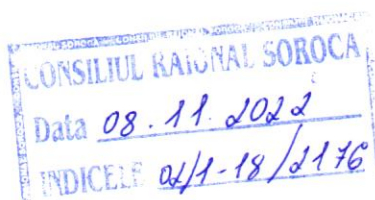 CONSILIUL RAIONAL SOROCA
Data 08.11.2022
INDICELE 02/1-18/2176